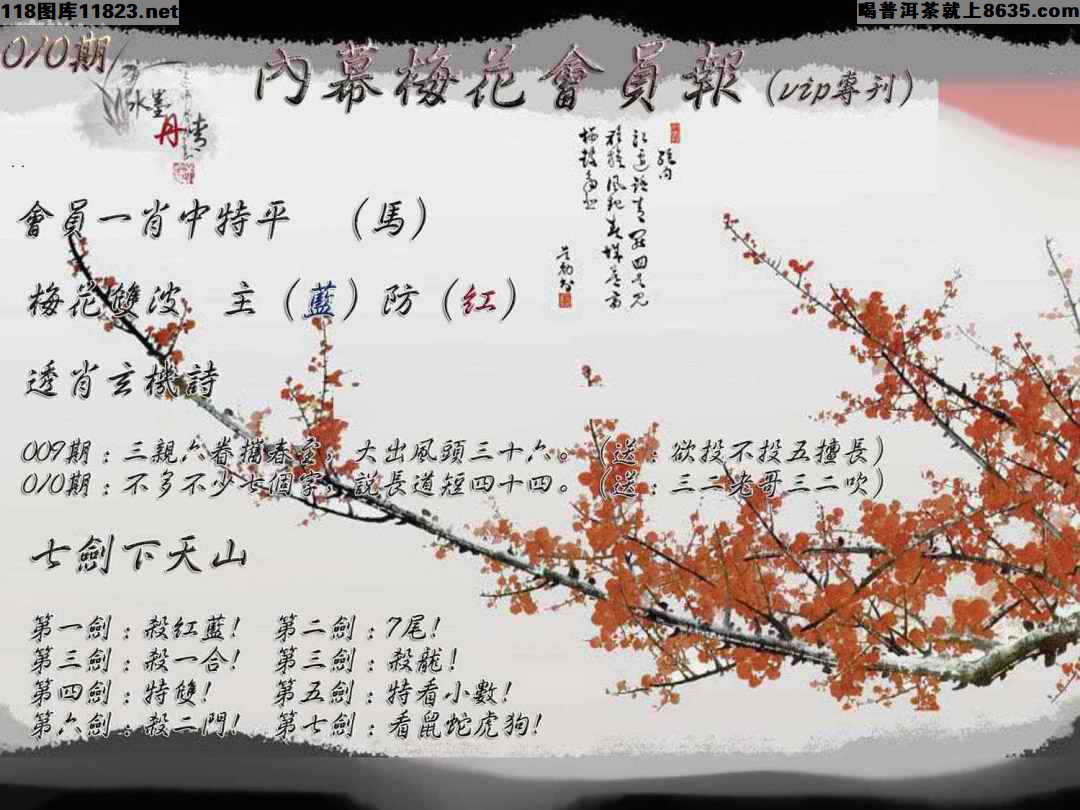 118图库11823.net
喝普洱茶就上8635.com
010期
內幕梅花會員報(vip專刊)
水墨
丹情
會員一肖中特平 (馬)
梅花雙波 主(藍)防(紅)
透肖玄機詩
009期:三親六眷攜春至,大出風頭三十六。(送:欲投不投五擅長)
010期:不多不少七個字,說長道短四十四。(送:三二老哥三二吹)
七劍下天山
第一劍:殺紅藍! 第二劍:7尾!
第三劍:殺一合! 第三劍:殺龍!
第四劍:特雙! 第五劍:特看小數!
第六劍:殺二門! 第七劍:看鼠蛇虎狗!